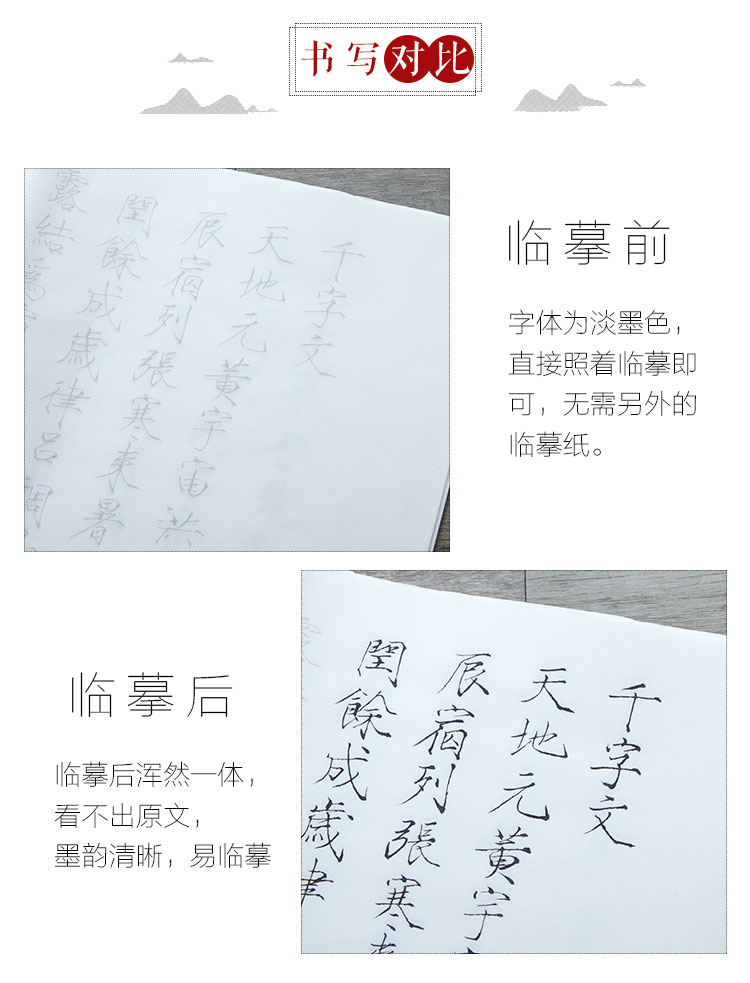 书写对比
临摹前
字体为淡墨色，
直接照着临摹即
可，无需另外的
临摹纸。
千字文
天地元黃宇宙洪
辰宿列張寒来暑
閏餘成歲律呂調
露結爲
临摹后
临摹后浑然一体，
看不出原文，
墨韵清晰，易临摹
千字文
天地元黃宇
辰宿列張寒
閏餘成歲律